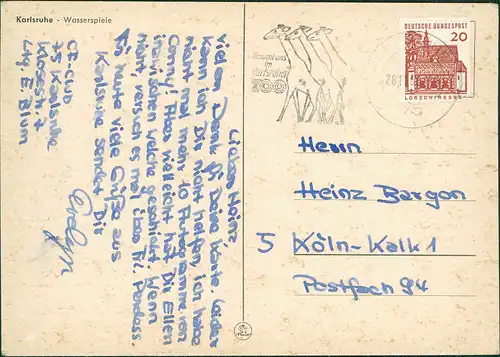 Karlsruhe - Wasserspiele
Lieber Heinz
Vielen Dank für Deine Karte. Leider
kann ich Dir nicht helfen, ich habe
nicht mal mehr 10 Autogramme von
Conny! Aber vielleicht hat Dir Ellen
inzwischen welche geschickt! Wenn
nicht, versuch es mal über Fr.
So heute viele Grüße aus
Karlsruhe sendet Dir
Evelyn
CF-Club
75 Karlsruhe
Klosestr. 7
E. Blum
Besucht uns
im
Karlsruher
ZOO
DEUTSCHE BUNDESPOST
20
LORSCH/HESSEN
75
Herrn
Heinz Bargon
5 Köln-Kalk 1
Postfach 94